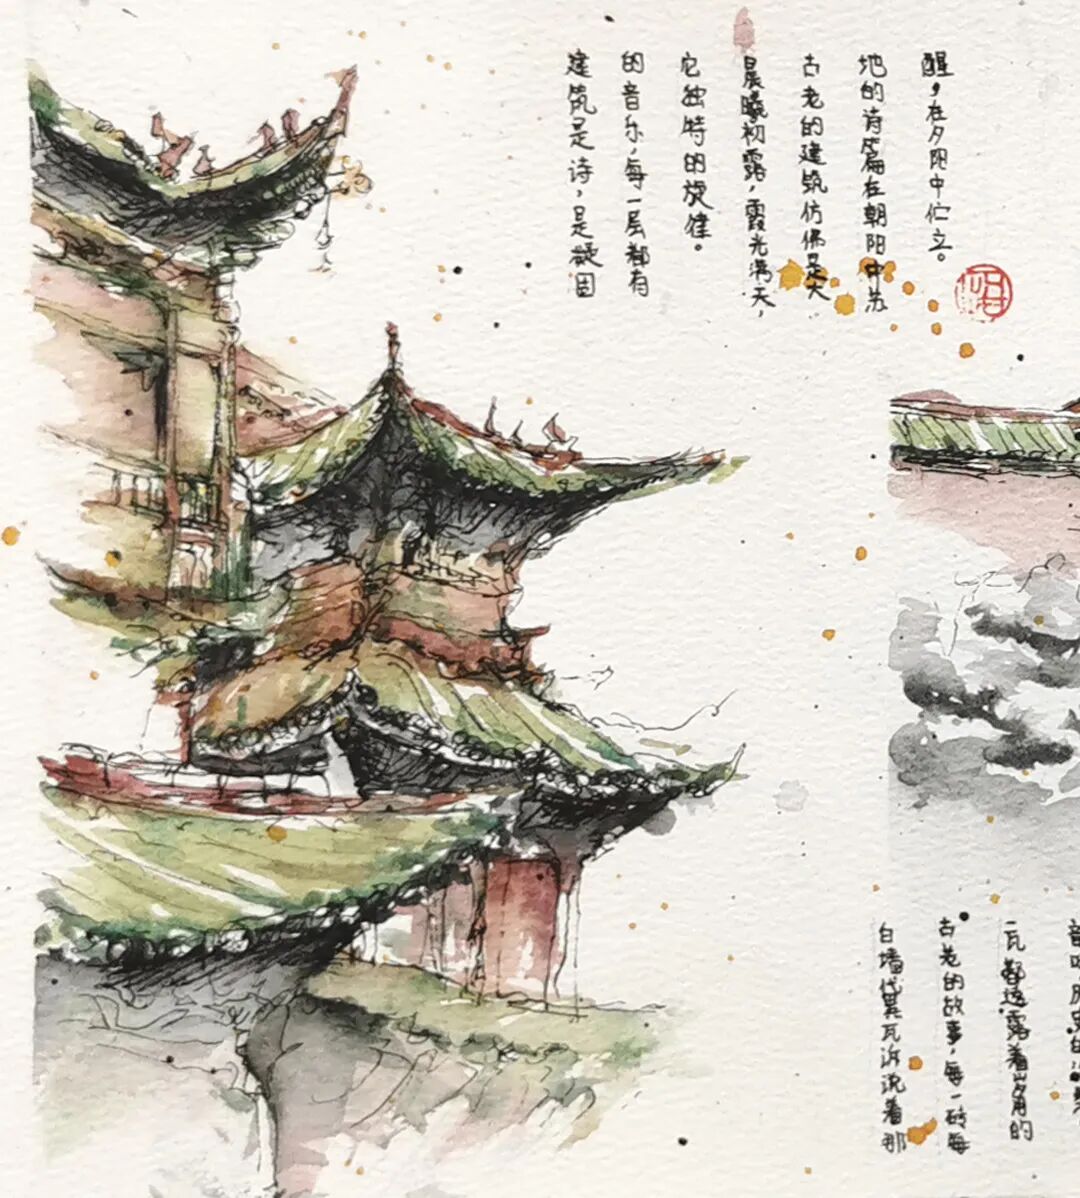 建筑是诗，是凝固
的音乐，每一层都有
它独特的旋律。
晨曦初露，霞光满天，
古老的建筑仿佛是大
地的诗篇在朝阳中苏
醒，在夕阳中伫立。
白墙黛瓦诉说着那
古老的故事，每一砖每
一瓦都透露着岁月的